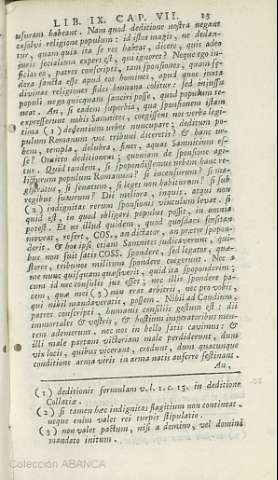 LIB. IX. CAP. VII. 25
usuram habeant. Nam quod deditione nostra negant
exsolvi religione populum: id istos magis, ne dedan-
tur, quam quia ita se res habeat, dicere, quis adeo
juris fecialium expers est, qui ignoret? Neque ego in-
ficias eo, patres conscripti, tam sponsiones, quam fœ-
dera sancta esse apud eos homines, apud quos juxta
divinas religiones fides humana colitur: sed injussu
populi nego quicquam sanciri posse, quod populum te-
neat. An, si eadem superbia, qua sponsionem istam
expresserunt nobis Samnites, coegissent nos verba legi-
tima (1) dedentium urbes nuncupare; deditum po-
pulum Romanum vos tribuni diceretis? & hanc ur-
bem, templa, delubra, fines, aquas Samnitium es-
se? Omitto deditionem; quoniam de sponsione agi-
tur. Quid tandem, si spopondissemus urbem hanc re-
licturum populum Romanum? si incensurum? si ma-
gistratus, si senatum, si leges non habiturum? si sub
regibus futurum? Dii meliora, inquit. atqui non
(2) indignitas rerum sponsionis vinculum levat. si
quid est, in quod obligari populus possit, in omnia
potest. Et ne illud quidem, quod quosdam forsitan
moveat, refert, COS. an dictator, an prætor spopon-
derit. & hoc ipsi etiam Samnites judicaverunt, qui-
bus non fuit satis COSS. spondere, sed legatos, quæ-
stores, tribunos militum spondere coegerunt. Nec a
me nunc quisquam quæsiverit, quid ita spoponderim;
cum id nec consulis jus esset; nec illis spondere pa-
cem, quæ mei (3) non erat arbitrii, nec pro vobis,
qui nihil mandaveratis, possem. Nihil ad Caudium,
patres conscripti, humanis consiliis gestum est: dii
immortales & vestris, & hostium imperatoribus men-
tem ademerunt. nec nos in bello satis cavimus: &
illi male partam victoriam male perdiderunt, dum
vix locis, quibus vicerant, credunt, dum quacunque
conditione arma viris in arma natis auferre festinant
An,
(1) deditionis formulam v. l. 1. c. 15. in deditione
Collatiæ.
(2) si tamen hæc indignitas flagitium non contineat.
neque enim valet rei turpis stipulatio.
(3) non valet pactum, nisi a domino, vel domini
mandato initum.
Colección ABANCA